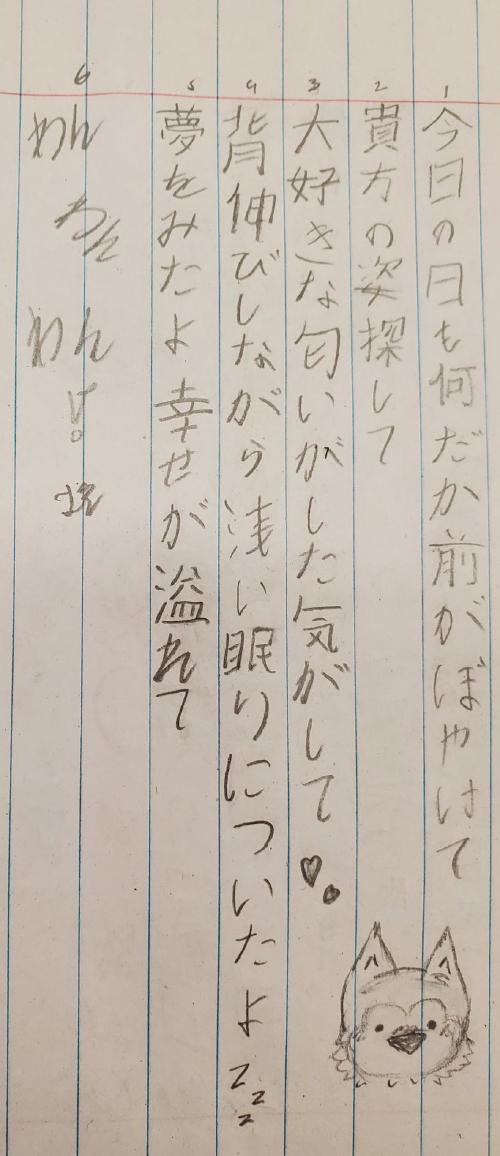 1 今日の日も何だか前がぼやけて
2 貴方の姿探して
3 大好きな匂いがした気がして
4 背伸びしながら浅い眠りについたよ zzz
5 夢をみたよ 幸せが溢れて
6 わん わん わん!。